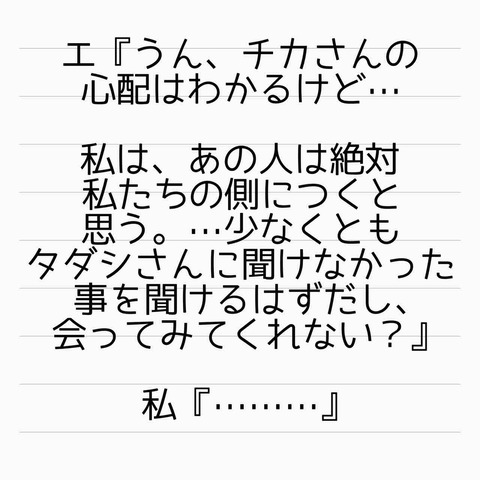 エ『うん、チカさんの
心配はわかるけど…
私は、あの人は絶対
私たちの側につくと
思う。…少なくとも
タダシさんに聞けなかった
事を聞けるはずだし、
会ってみてくれない？』
私『………』